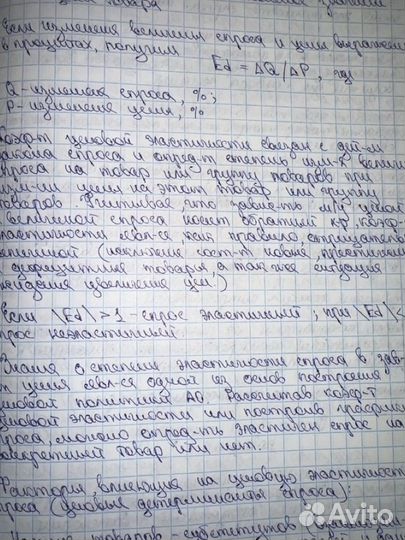 товара
Если изменения величины спроса и цены выражены
в процентах, получим
Ed = ΔQ/ΔP, где
Q - изменение спроса, %;
P - изменение цены, %
Коэф-т ценовой эластичности связан с
закона спроса и опред-т степень изм-я величины
спроса на товар или группу товаров при
изм-ии цены на этот товар или группу
товаров. Учитывая, что завис-ть м/у ценой
и величиной спроса носит обратный х-р, коэф-
эластичности явл-ся, как правило, отрицательной
величиной (исключения сост-т
товара, а так же ситуация
ожидания увеличения цен.)
Если \Ed\ > 1 - спрос эластичный; при \Ed\ <
спрос неэластичный.
Знания о степени эластичности спроса в зав-
от цены явл-ся одной из основ построения
ценовой политики АО. Рассчитав коэф-т
ценовой эластичности или построив график
спроса, можно опред-ть эластичен спрос на
конкретный товар или нет.
Факторы, влияющие на ценовую эластичность
спроса (ценовые детерминанты спроса):
товаров - субститутов
Avito